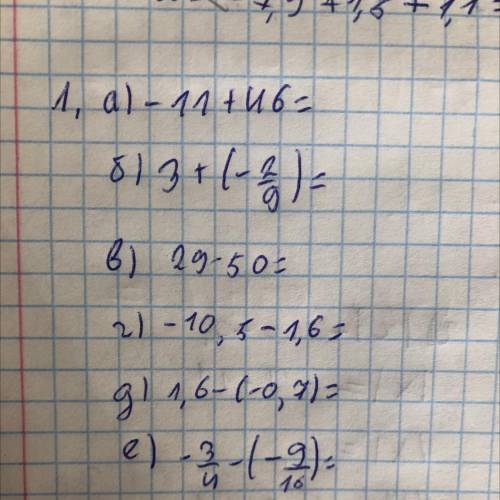 1, а) -11+46=
б) 3+(-2/9)=
в) 29-50=
г) -10,5-1,6=
д) 1,6-(-0,7)=
е) -3/4-(-9/16)=